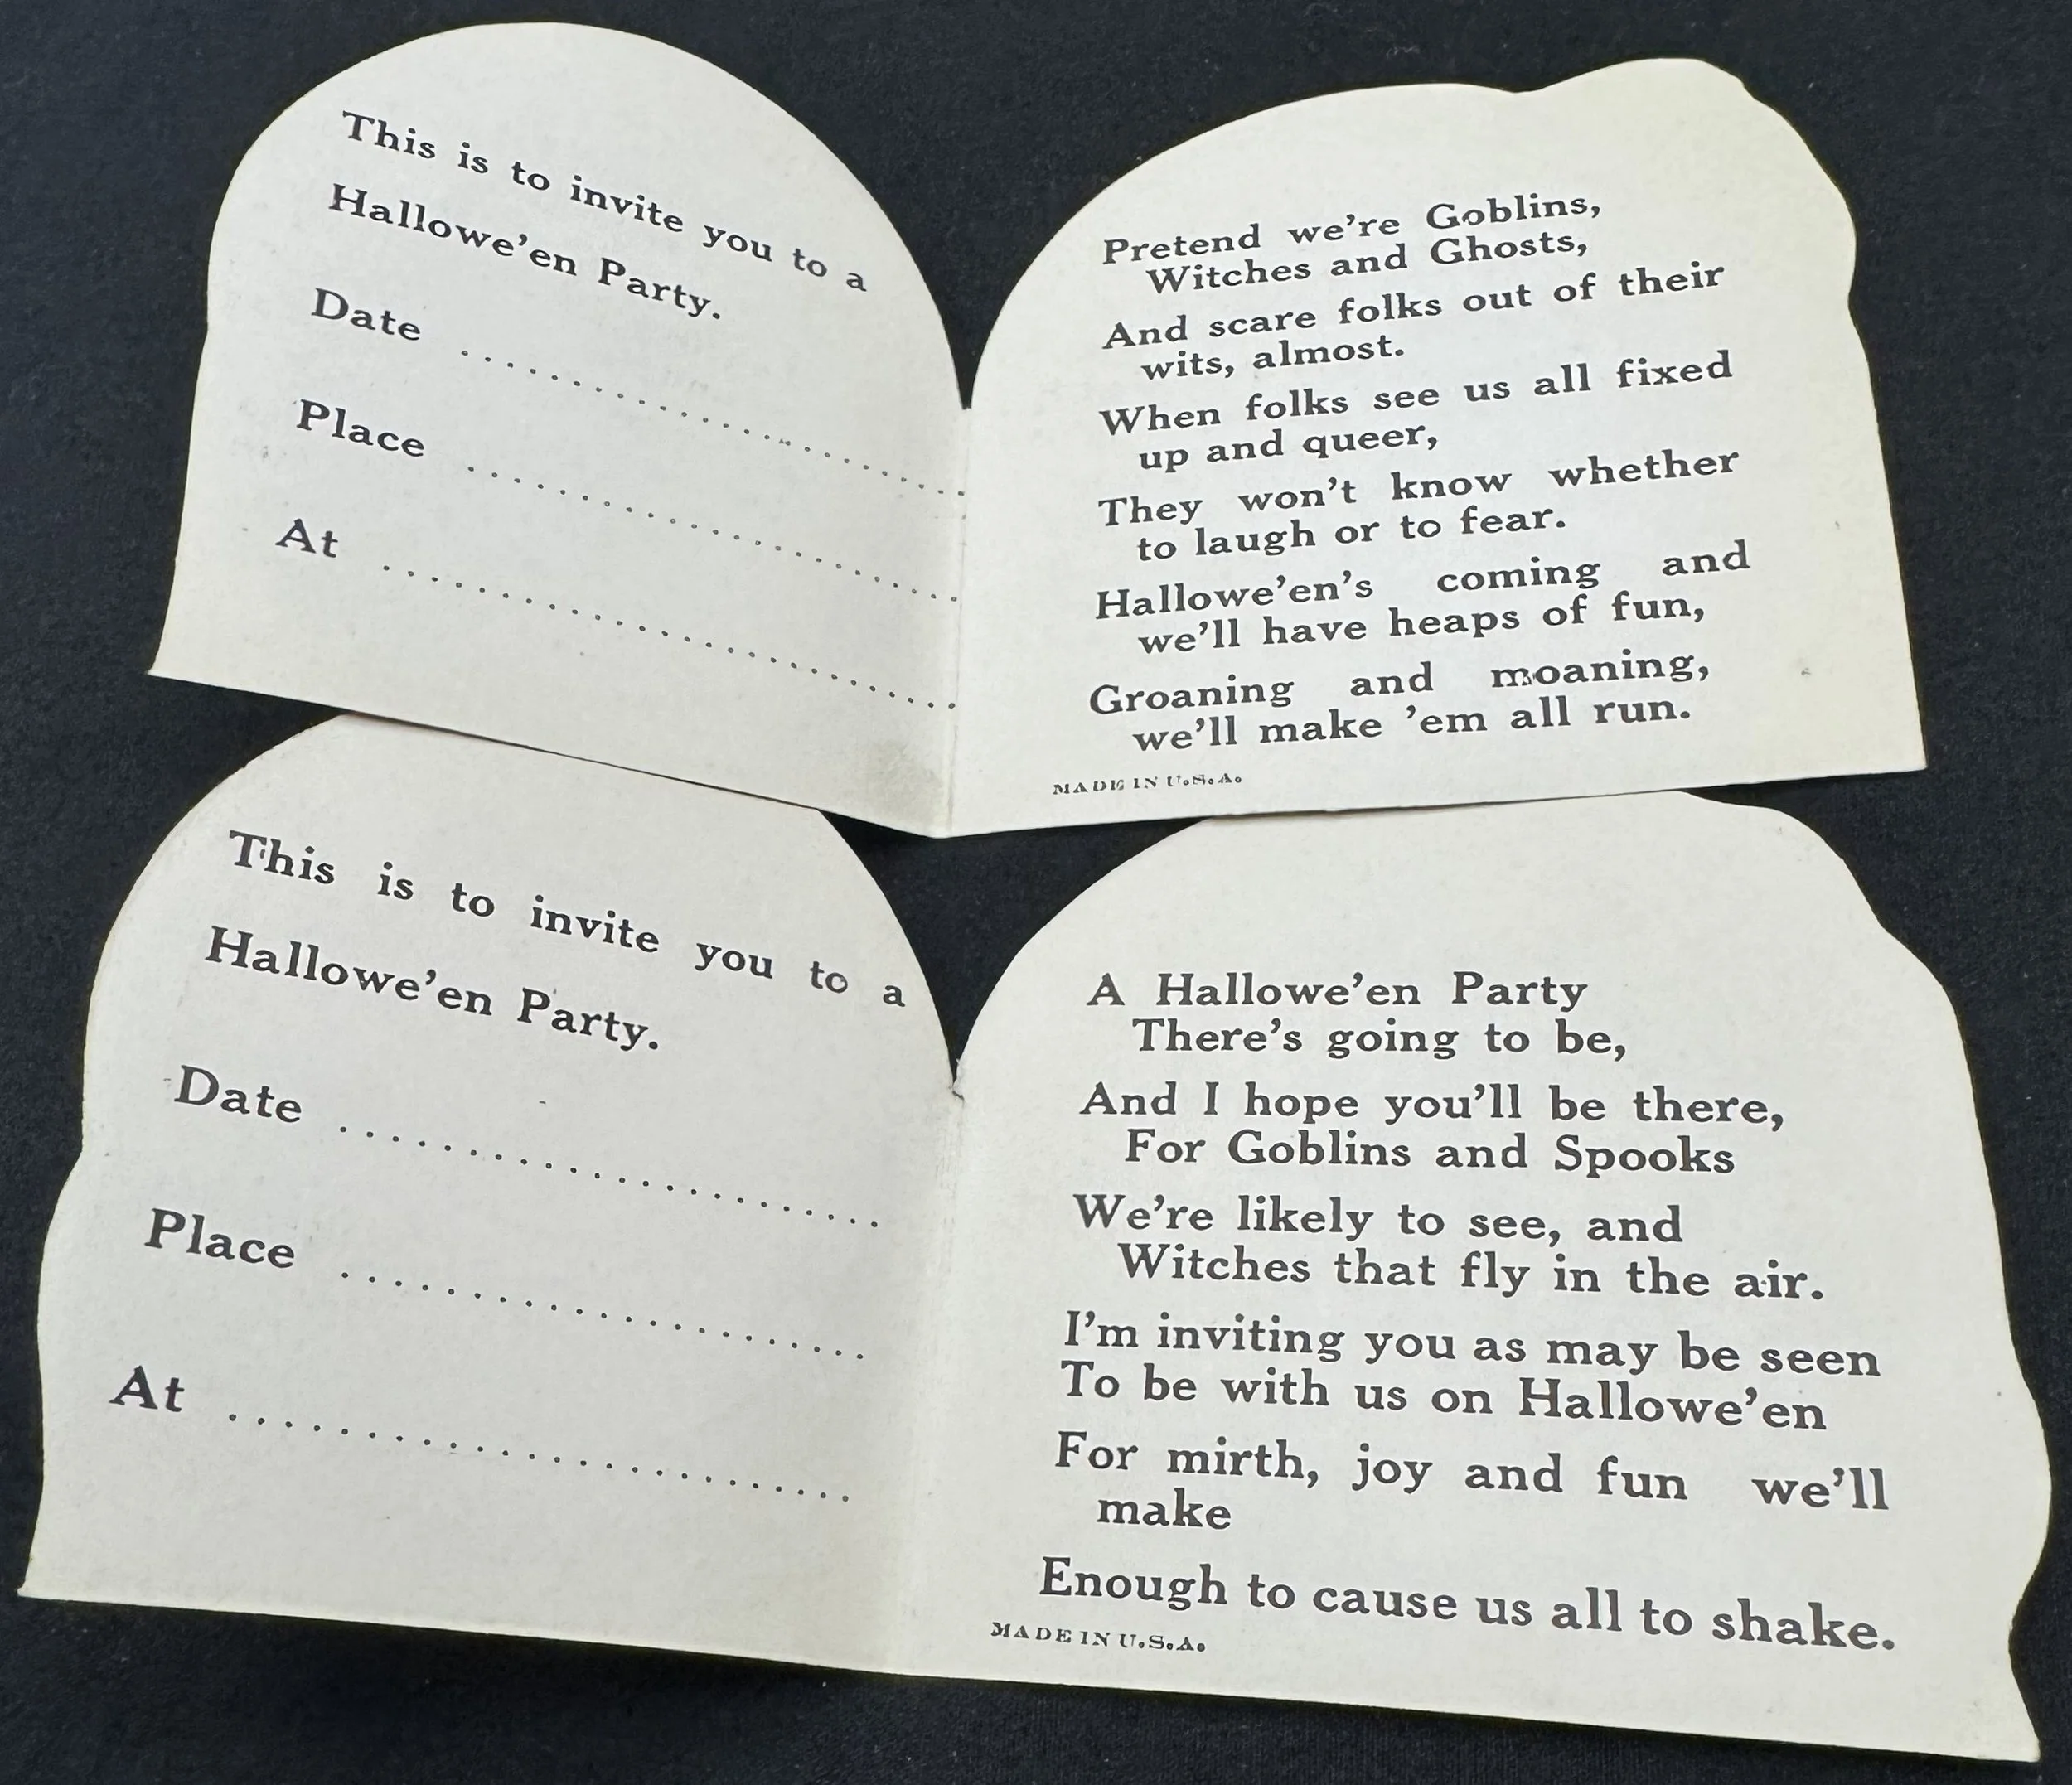 This is to invite you to a
Hallowe'en Party.
Date ....................
Place ....................
At ........................
Pretend we're Goblins,
Witches and Ghosts,
And scare folks out of their
wits, almost.
When folks see us all fixed
up and queer,
They won't know whether
to laugh or to fear.
Hallowe'en's coming and
we'll have heaps of fun,
Groaning and moaning,
we'll make 'em all run.
MADE IN U.S.A.
This is to invite you to a
Hallowe'en Party.
Date .....................
Place ....................
At .......................
A Hallowe'en Party
There's going to be,
And I hope you'll be there,
For Goblins and Spooks
We're likely to see, and
Witches that fly in the air.
I'm inviting you as may be seen
To be with us on Hallowe'en
For mirth, joy and fun we'll
make
Enough to cause us all to shake.
MADE IN U.S.A.